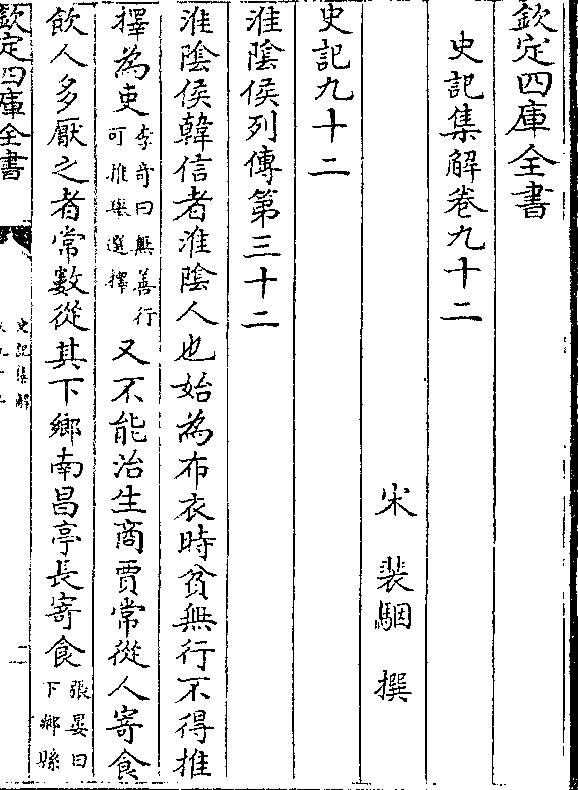 欽定四庫全書
史記集解卷九十二
宋　裴駰　撰
史記九十二
淮陰侯列傳第三十二
淮陰侯韓信者淮陰人也始為布衣時貧無行不得推
擇為吏李奇曰無善行可推舉選擇又不能治生商賈常從人寄食
飲人多厭之者常數從其下鄉南昌亭長寄食張晏曰下鄉縣
欽定四庫全書
史記集解